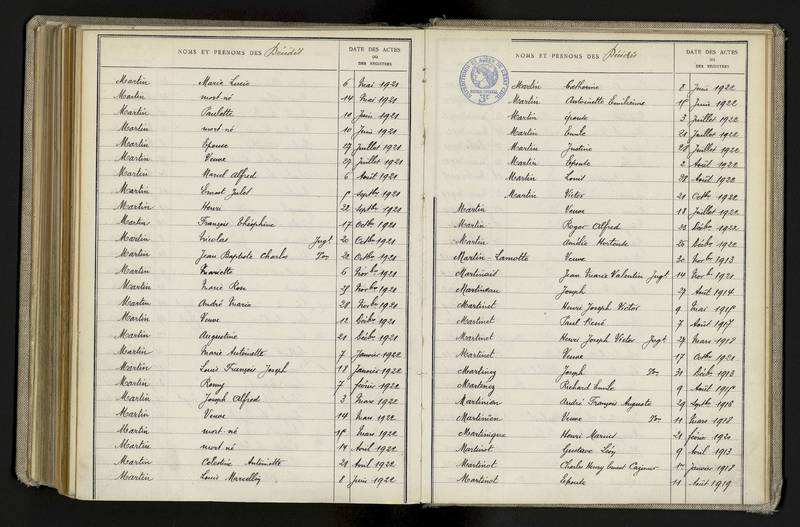 NOMS ET PRÉNOMS DES Décédés
DATE DES ACTES
OU
DES REGISTRES
Martin Marie Lucie 6 Mai 1921
Martin mort-né 14 Mai 1921
Martin Paulette 10 Juin 1921
Martin mort-né 10 Juin 1921
Martin Epouse 27 Juillet 1921
Martin Veuve 29 Juillet 1921
Martin Marcel Alfred 6 Août 1921
Martin Ernest Jules Septbre 1921
Martin Henri 22 Septbre 1921
Martin François Théophane 17 Octbre 1921
Martin Nicolas Jugt 20 Octbre 1921
Martin Jean Baptiste Charles Ton 22 Octbre 1921
Martin Mariette 6 Novbre 1921
Martin Marie Rose 25 Novbre 1921
Martin André Marie 28 Novbre 1921
Martin Veuve 12 Décbre 1921
Martin Augustine 21 Décbre 1921
Martin Marie Antoinette 7 Janvier 1922
Martin Louis François Joseph 18 Janvier 1922
Martin Remy 7 février 1922
Martin Joseph Alfred 3 Mars 1922
Martin Veuve 14 Mars 1922
Martin mort-né 15 Mars 1922
Martin mort-né 14 Avril 1922
Martin Célestine Antoinette 20 Avril 1922
Martin Louis Marcellin 8 Juin 1922
NOMS ET PRÉNOMS DES Décédés
DATE DES ACTES
OU
DES REGISTRES
3F
Martin Catherine 8 Juin 1922
Martin Antoinette Emilienne 15 Juin 1922
Martin épouse 3 Juillet 1922
Martin Emile 21 Juillet 1922
Martin Justine 28 Juillet 1922
Martin Epouse 2 Août 1922
Martin Louis 28 Août 1922
Martin Victor 21 Octbre 1922
Martin Veuve 18 Juillet 1922
Martin Roger Alfred Décbre 1922
Martin Amélie Hortense 26 Décbre 1922
Martin-Lamotte Veuve 30 Novbre 1913
Martinait Jean Marie Valentin Jugt 14 Novbre 1921
Martineau Joseph 27 Août 1914
Martinet Henri Joseph Victor 9 Mai 1915
Martinet Paul René 7 Août 1917
Martinet Henri Joseph Victor Jugt 27 Mars 1918
Martinet Veuve 17 Octbre 1921
Martinez Joseph Ton 31 Décbre 1913
Martinez Richard Emile 9 Août 1915
Martinien André François Auguste 29 Septbre 1916
Martinien Veuve Ton 11 Mars 1918
Martinique Henri Marius 21 févrie 1920
Martinot Gustave Léon 9 Avril 1913
Martinot Charles Henry Ernest Casimir 1er Janvier 1918
Martinot Epouse 11 Août 1919